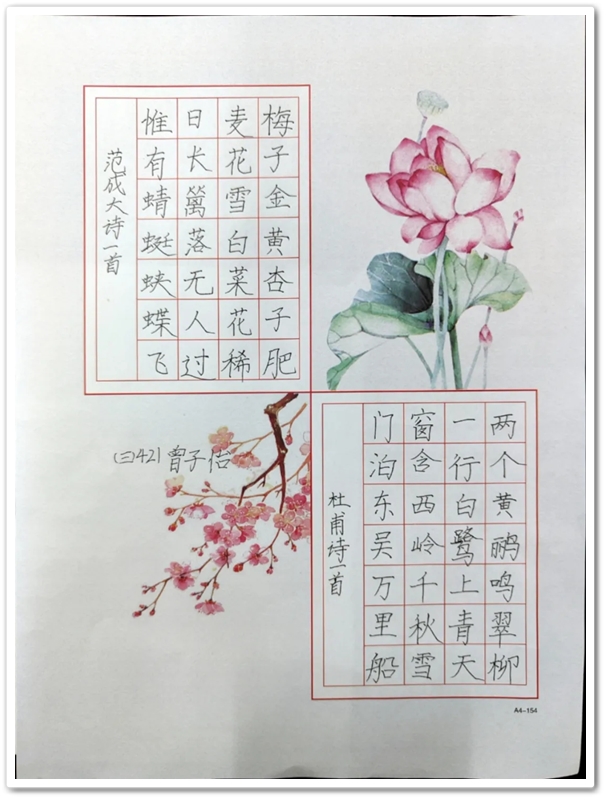 梅子金黄杏子肥
麦花雪白菜花稀
日长篱落无人过
惟有蜻蜓蛱蝶飞
范成大诗一首
两个黄鹂鸣翠柳
一行白鹭上青天
窗含西岭千秋雪
门泊东吴万里船
杜甫诗一首
(三)42) 曾子佁
A4-154